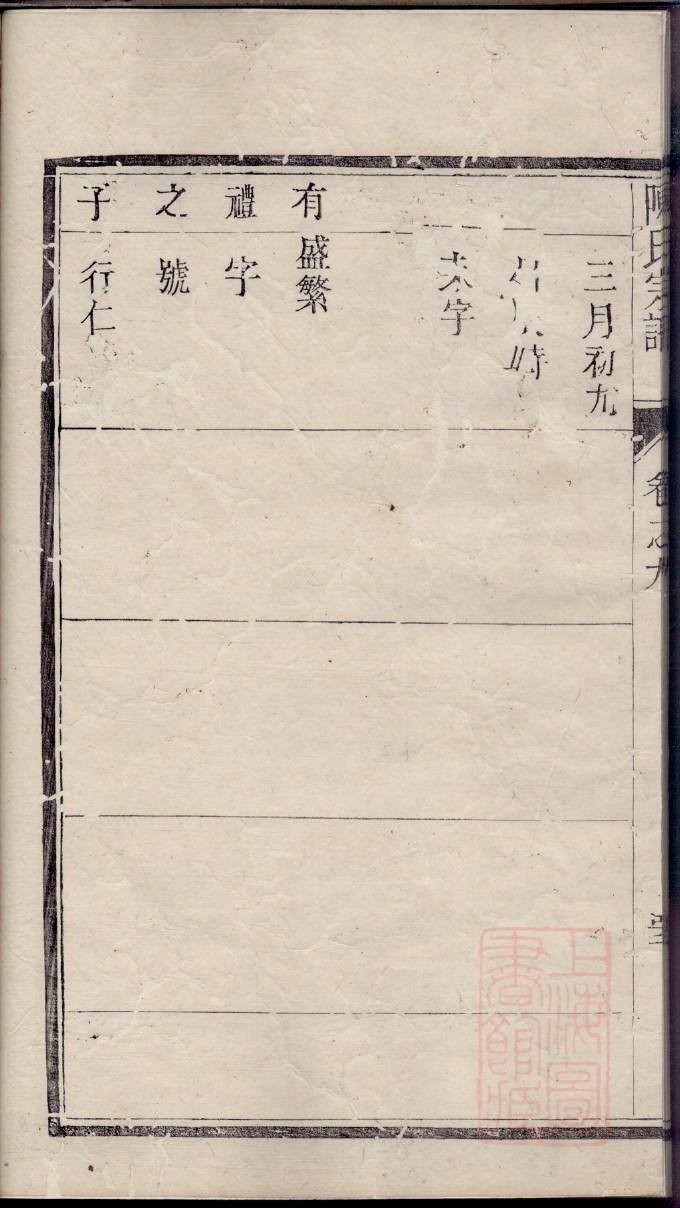 陳氏宗譜
卷之九
三月初九
時
未字
有
盛繁
禮
字
之
號
子
行仁
上海圖
書館藏